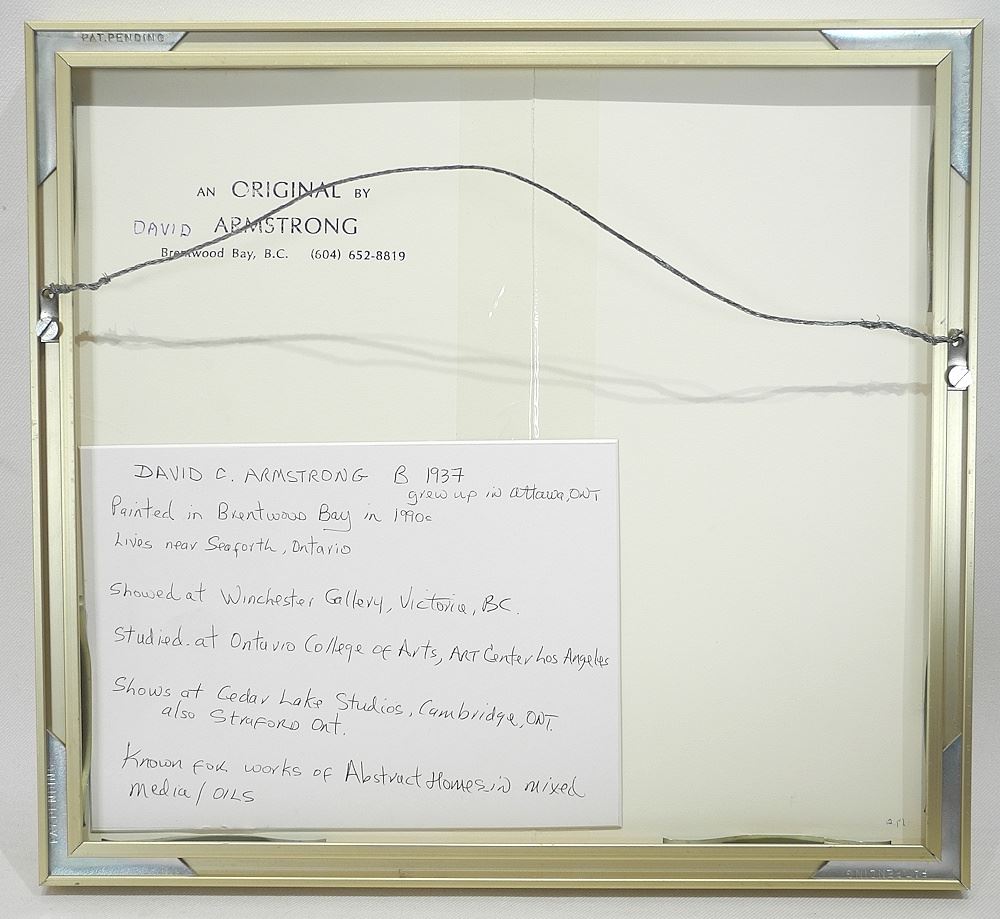 PAT.PENDING
AN ORIGINAL BY
DAVID ARMSTRONG
Brentwood Bay, B.C. (604) 652-8819
DAVID C. ARMSTRONG B 1937
grew up in Ottawa, ONT
Painted in Brentwood Bay in 1990s
Lives near Seaforth, Ontario
Showed at Winchester Gallery, Victoria, BC.
Studied at Ontario College of Arts, ART Center Los Angeles
Shows at Cedar Lake Studios, Cambridge, ONT.
also Straford Ont.
Known for works of Abstract Homes in mixed
media/OILS
PAT.PENDING
PAT.PENDING